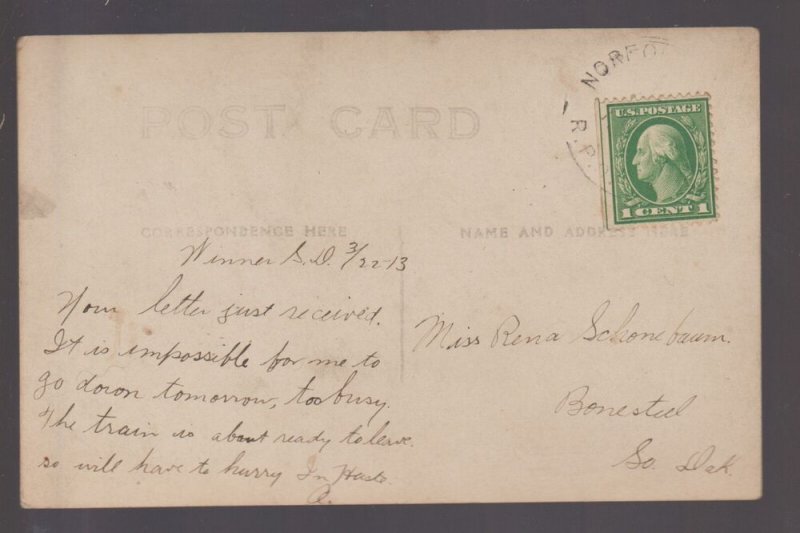 POST CARD
NORFO
R.P.
U.S. POSTAGE
1 CENT 1
CORRESPONDENCE HERE
NAME AND ADDRESS HERE
Winner S.D. 3/22-13
Your letter just received.
It is impossible for me to
go down tomorrow, too busy.
The train is about ready to leave
so will have to hurry In Haste
Miss Rena Schonebaum.
Bonesteel
So. Dak.